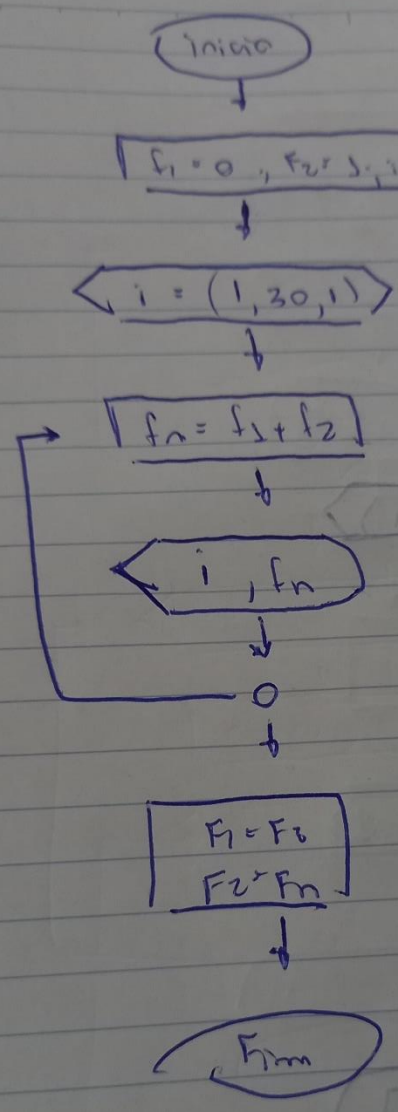 inicio
f1 = 0, F2 = 1, i
i = (1, 30, 1)
fn = f1 + f2
i, fn
F1 = F2
F2 = Fn
Fim